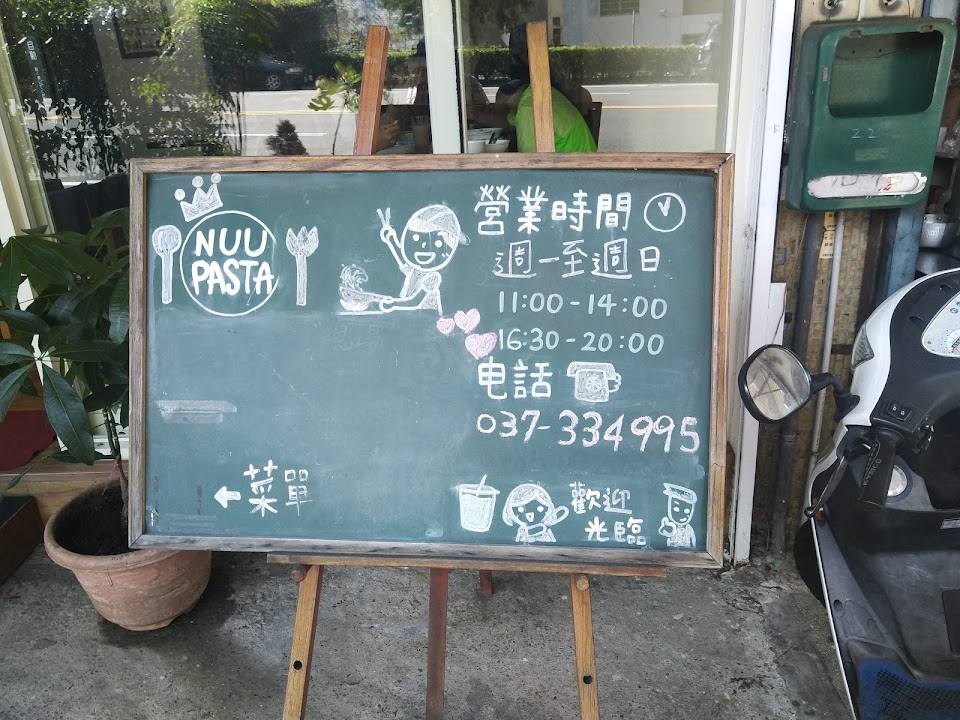 NUU
PASTA
營業時間
週一至週日
11:00-14:00
16:30-20:00
电話
037-334995
←菜單
歡迎
光臨
22